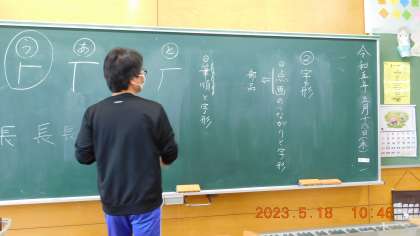 令和五年五月十八日(木)
②字形
◎点画のつながりと字形
部品
◎筆順と字形
と
あ
う
長
長
長
2023. 5.18 10:46